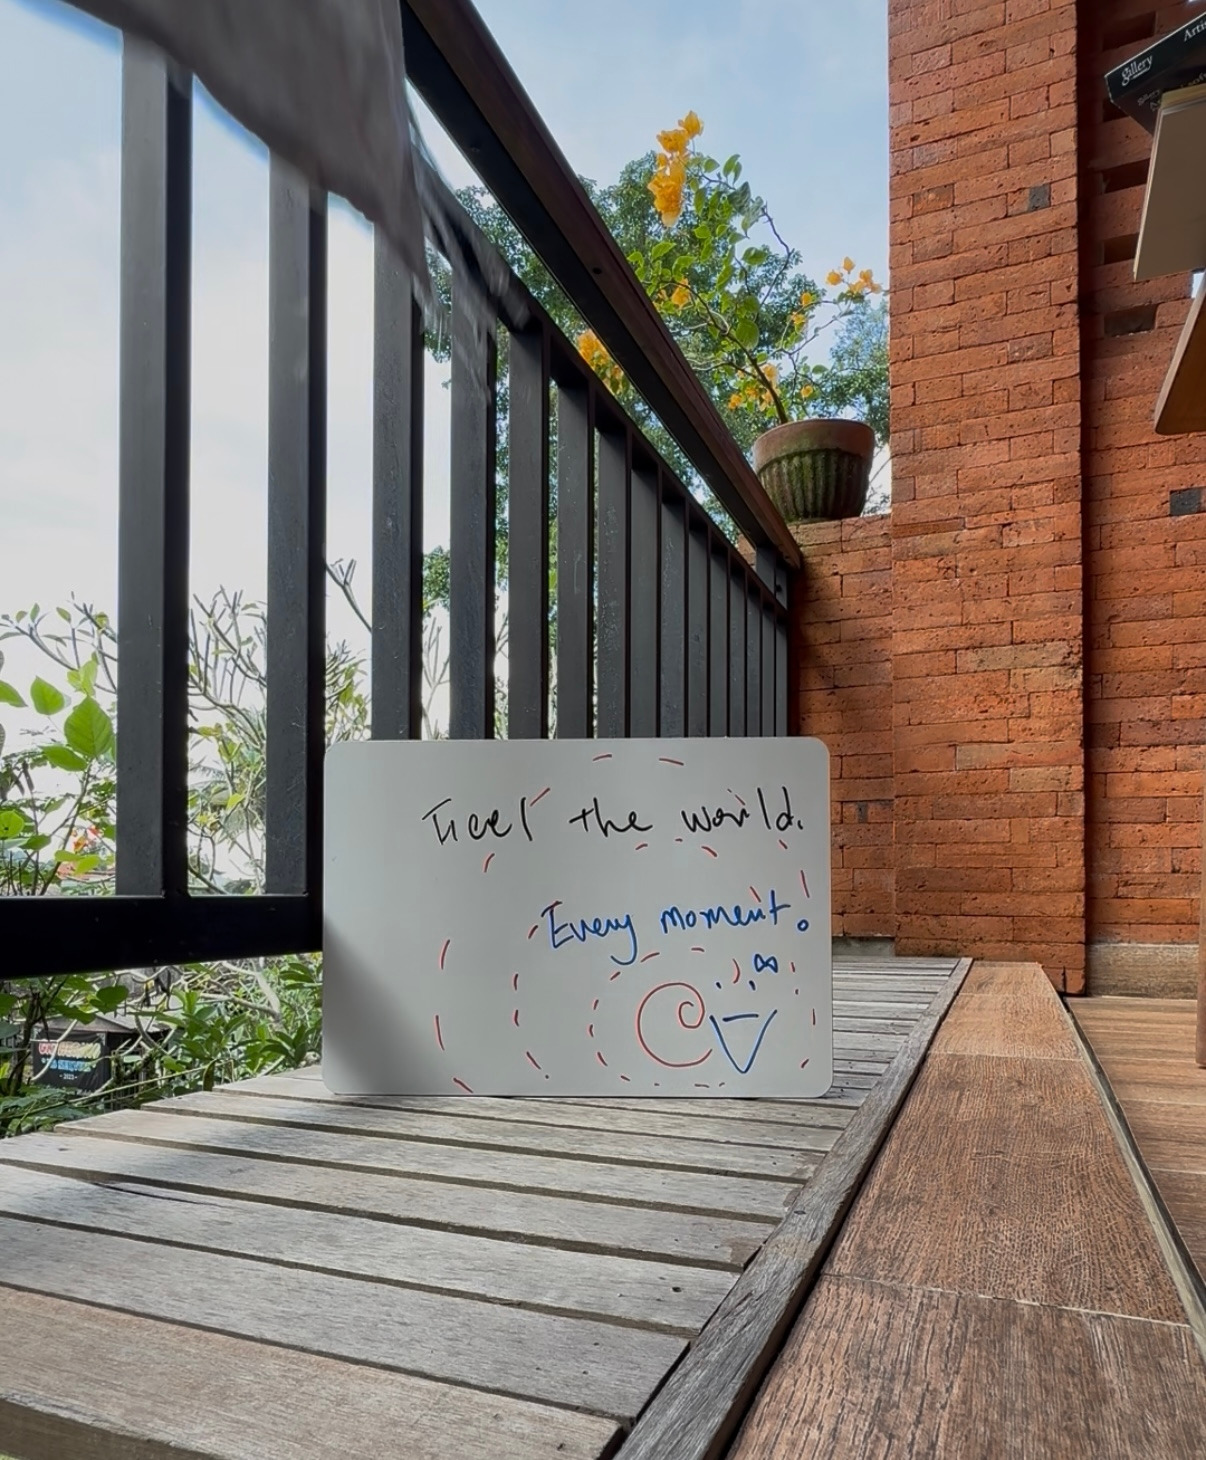 Feel the world.
Every moment.
∞
gallery